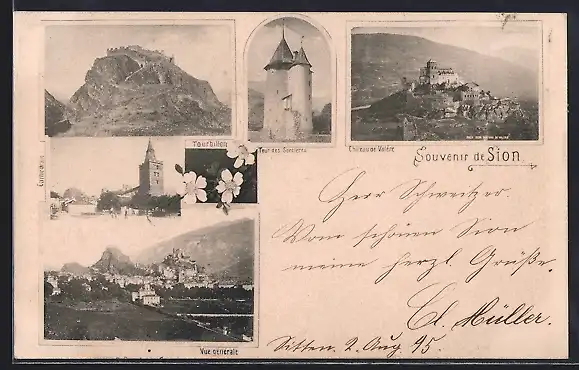 Tourbillon
Tour des Sorciers
Château de Valère
Souvenir de Sion
Cathédrale
Herr Schweitzer.
Vom schönen Sion
meine herzl. Grüße.
Cl. Müller.
Sitten. 2. Aug 95.
Vue générale